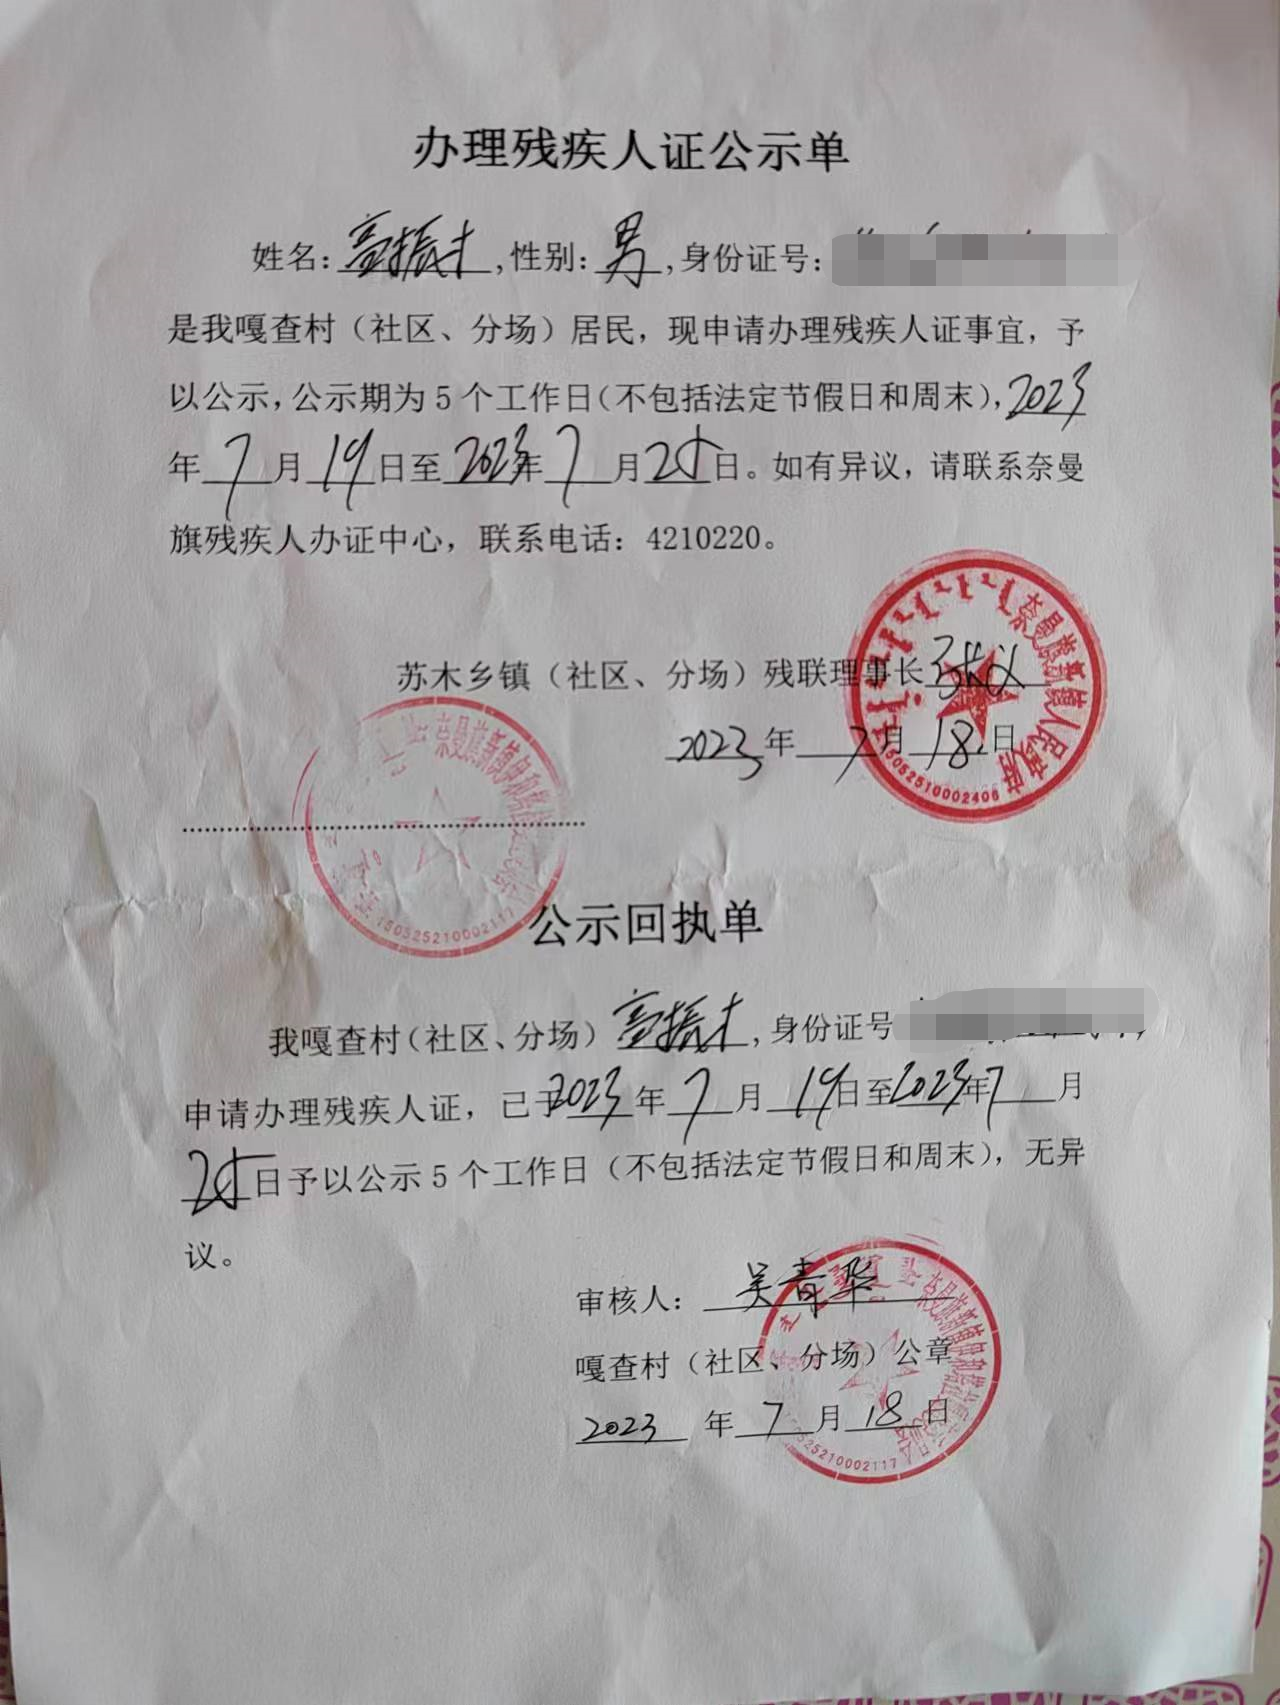 办理残疾人证公示单
姓名：高振才，性别：男，身份证号：
是我嘎查村（社区、分场）居民，现申请办理残疾人证事宜，予
以公示，公示期为5个工作日（不包括法定节假日和周末），2023
年7月19日至2023年7月25日。如有异议，请联系奈曼
旗残疾人办证中心，联系电话：4210220。
苏木乡镇（社区、分场）残联理事长
2023年7月18日
奈曼旗新镇人民政府
15052510002406
150525210002117
公示回执单
我嘎查村（社区、分场）高振才，身份证号
申请办理残疾人证，已于2023年7月19日至2023年7月
25日予以公示5个工作日（不包括法定节假日和周末），无异
议。
审核人：吴青华
嘎查村（社区、分场）公章
2023年7月18日